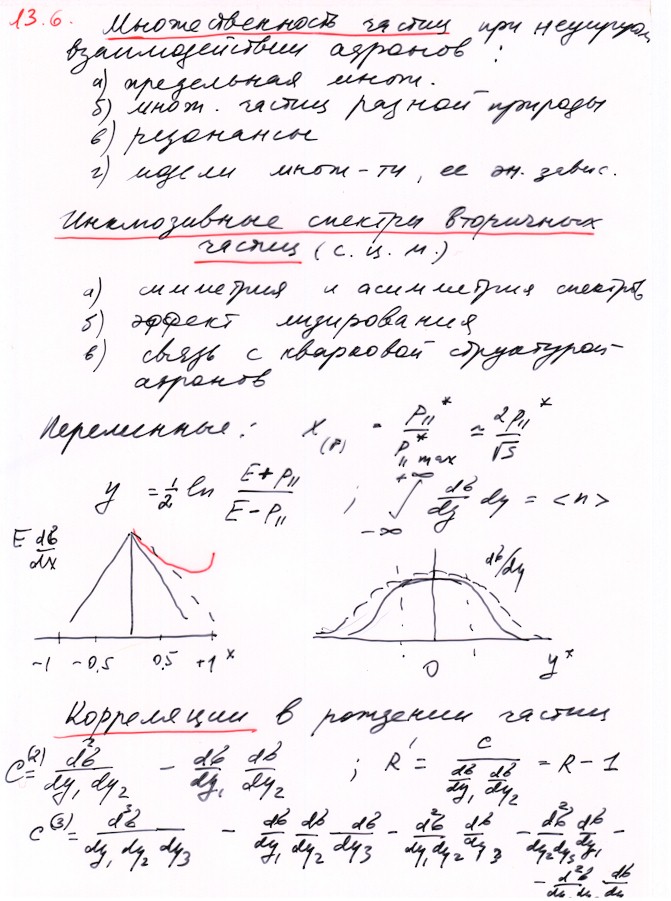 13.6. Множественность частиц при неупругом
взаимодействии адронов:
а) предельная множ.
б) множ. частиц разной природы
в) резонансы
г) модели множ-ти, ее эн. завис.
Инклюзивные спектры вторичных
частиц (с.ц.м.)
а) симметрия и асимметрия спектров
б) эффект лидирования
в) связь с кварковой структурой
адронов
Переменные: X_(F) = P_||^* / P^*_|| max ≃ 2P_||^* / √s
y = 1/2 ln (E+P_||)/(E-P_||) ; ∫_{-∞}^{+∞} dσ/dy dy = <n>
E dσ/dx
dσ/dy
-1 -0,5 0,5 +1 x
0 y*
Корреляции в рождении частиц
C^(2) = d²σ/dy₁dy₂ - dσ/dy₁ dσ/dy₂ ; R' = C / (dσ/dy₁ dσ/dy₂) = R - 1
C^(3) = d³σ/dy₁dy₂dy₃ - dσ/dy₁ dσ/dy₂ dσ/dy₃ - d²σ/dy₁dy₂ dσ/dy₃ - d²σ/dy₂dy₃ dσ/dy₁ -